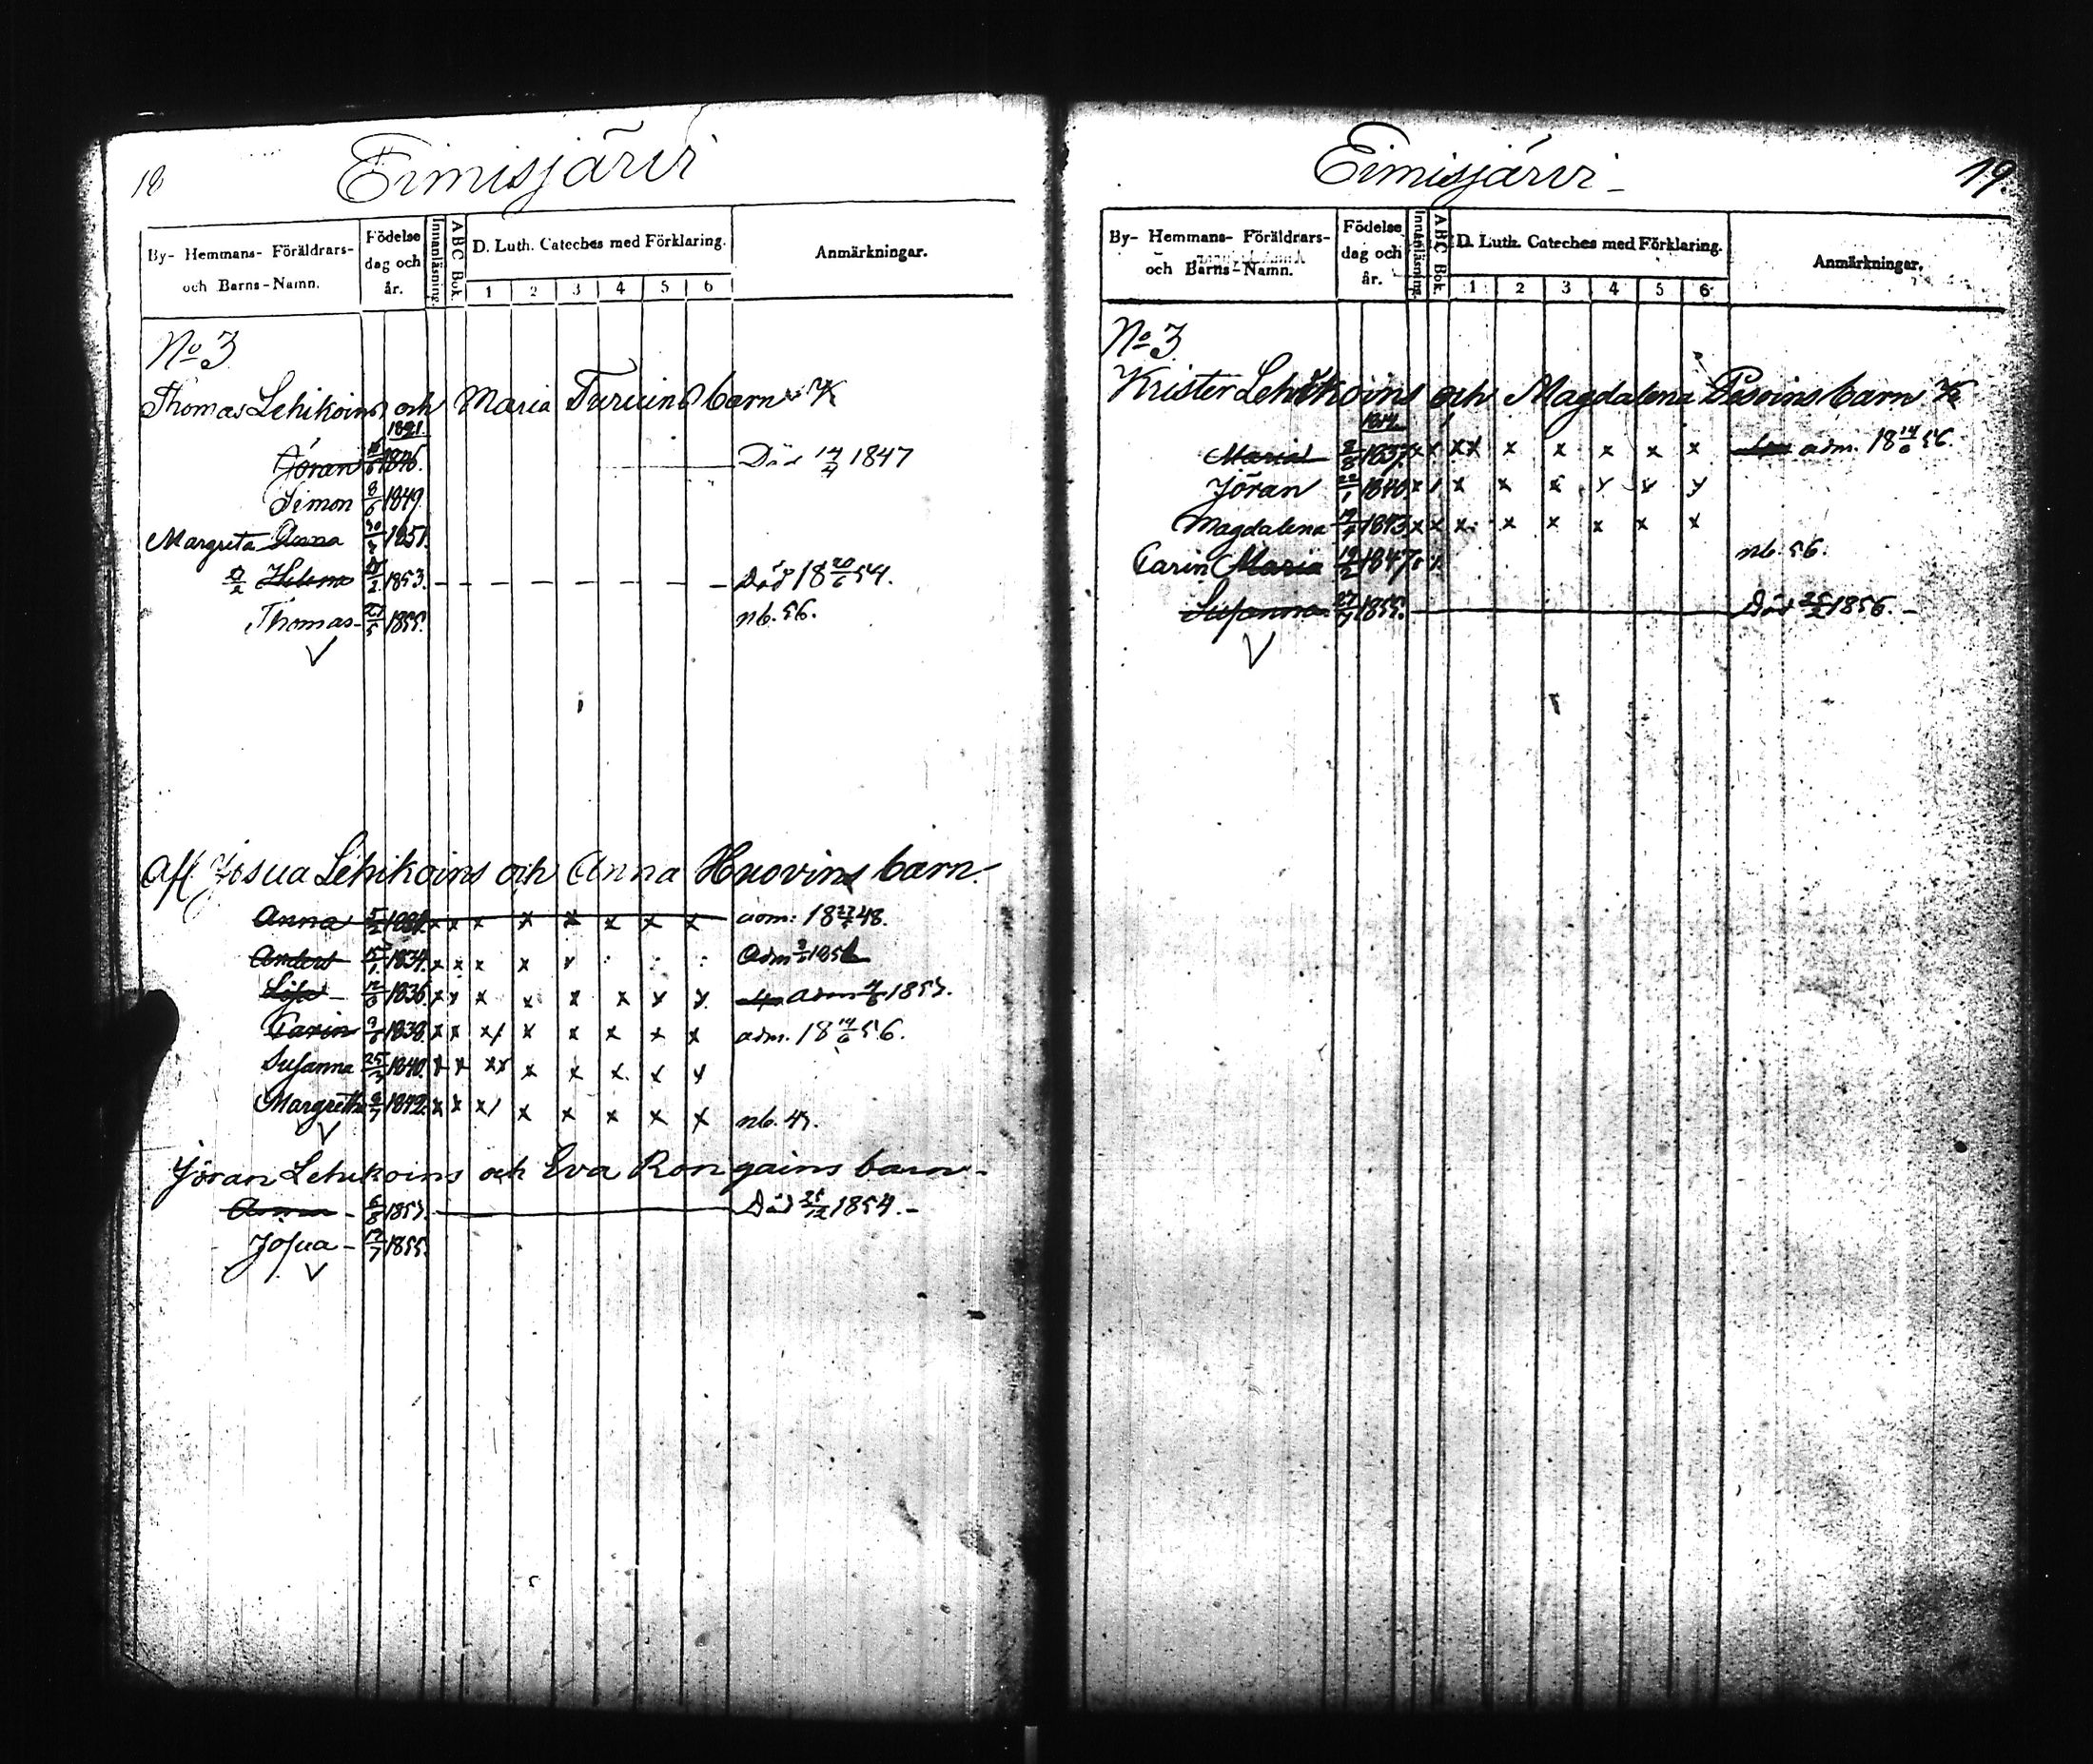 18
Eimisjärvi
By- Hemmans- Föräldrars- och Barns-Namn.
Födelse dag och år.
Innanläsning.
ABC Bok.
D. Luth. Cateches med Förklaring.
1 2 3 4 5 6
Anmärkningar.
No 3
Thomas Lehikoins och Maria barn
1821.
Jöran 1846. Död 1847
Simon 8/6 1849.
Margreta Anna 1851.
Helena 1853. Död 18 20/6 54.
Thomas 1855. nb. 56.
Afl. Josua Lehikoins och Anna Huovins barn.
Anna x x x x x x x x adm: 18 48.
Anders 1834. x x x x adm
Lisa 1836 x x x x x x x x adm 1853.
Carin 1838. x x x/ x x x x x adm. 18 14/6 56.
Susanna 25/3 1840. x x xx x x x x x
Margretha 1842. x x x/ x x x x x nb. 4
Jöran Lehikoins och Eva Rongains barn-
6/8 1853. Död 25/12 1854.-
Josua - 12/7 1855.
Eimisjärvi-
19.
By- Hemmans- Föräldrars- och Barns-Namn.
Födelse dag och år.
Innanläsning.
ABC Bok.
D. Luth. Cateches med Förklaring.
1 2 3 4 5 6
Anmärkningar.
No 3
Krister Lehikoins och Magdalena Pesoins barn
Maria 1837. x x xx x x x x x adm. 18 14/6 56.
Jöran 22/1 1840 x / x x x x x x
Magdalena 1843 x x x x x x x x
Carin Maria 1847 nb. 56.
Susanna 1855. Död 25/2 1856.-